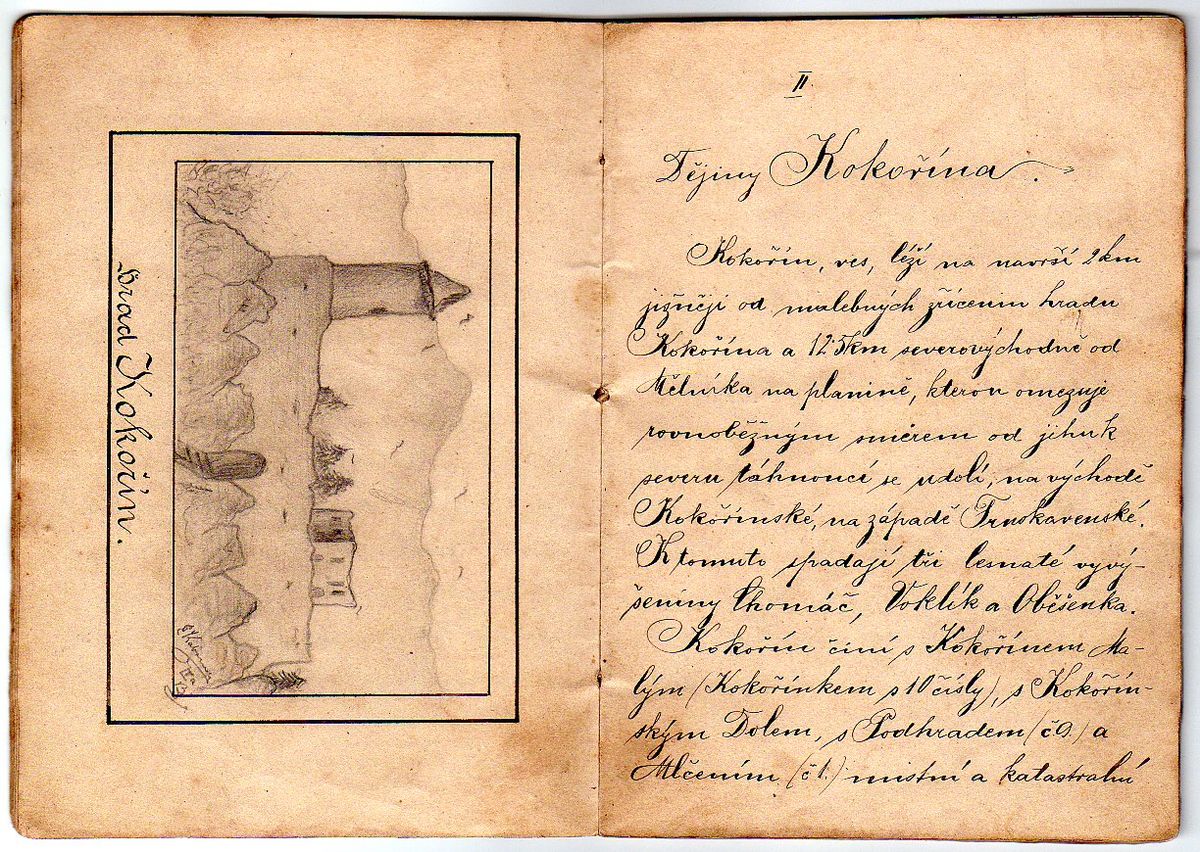 Hrad Kokořín.
II
Dějiny Kokořína.
Kokořín, ves, leží na návrší 2km
jižněji od malebných zřícenin hradu
Kokořína a 12·5km severovýchodně od
Mělníka na planině, kterou omezuje
rovnoběžným směrem od jihu k
severu táhnoucí se udolí, na východě
Kokořínské, na západě Truskavenské.
K tomuto spadají tři lesnaté vyvý-
šeniny Chomáč, Voklík a Oběšenka.
Kokořín činí s Kokořínem Ma-
lým (Kokořínkem s 10 čísly), s Kokořín-
ským Dolem, s Podhradem (č 9.) a
Mlčením (č 1.) místní a katastrální